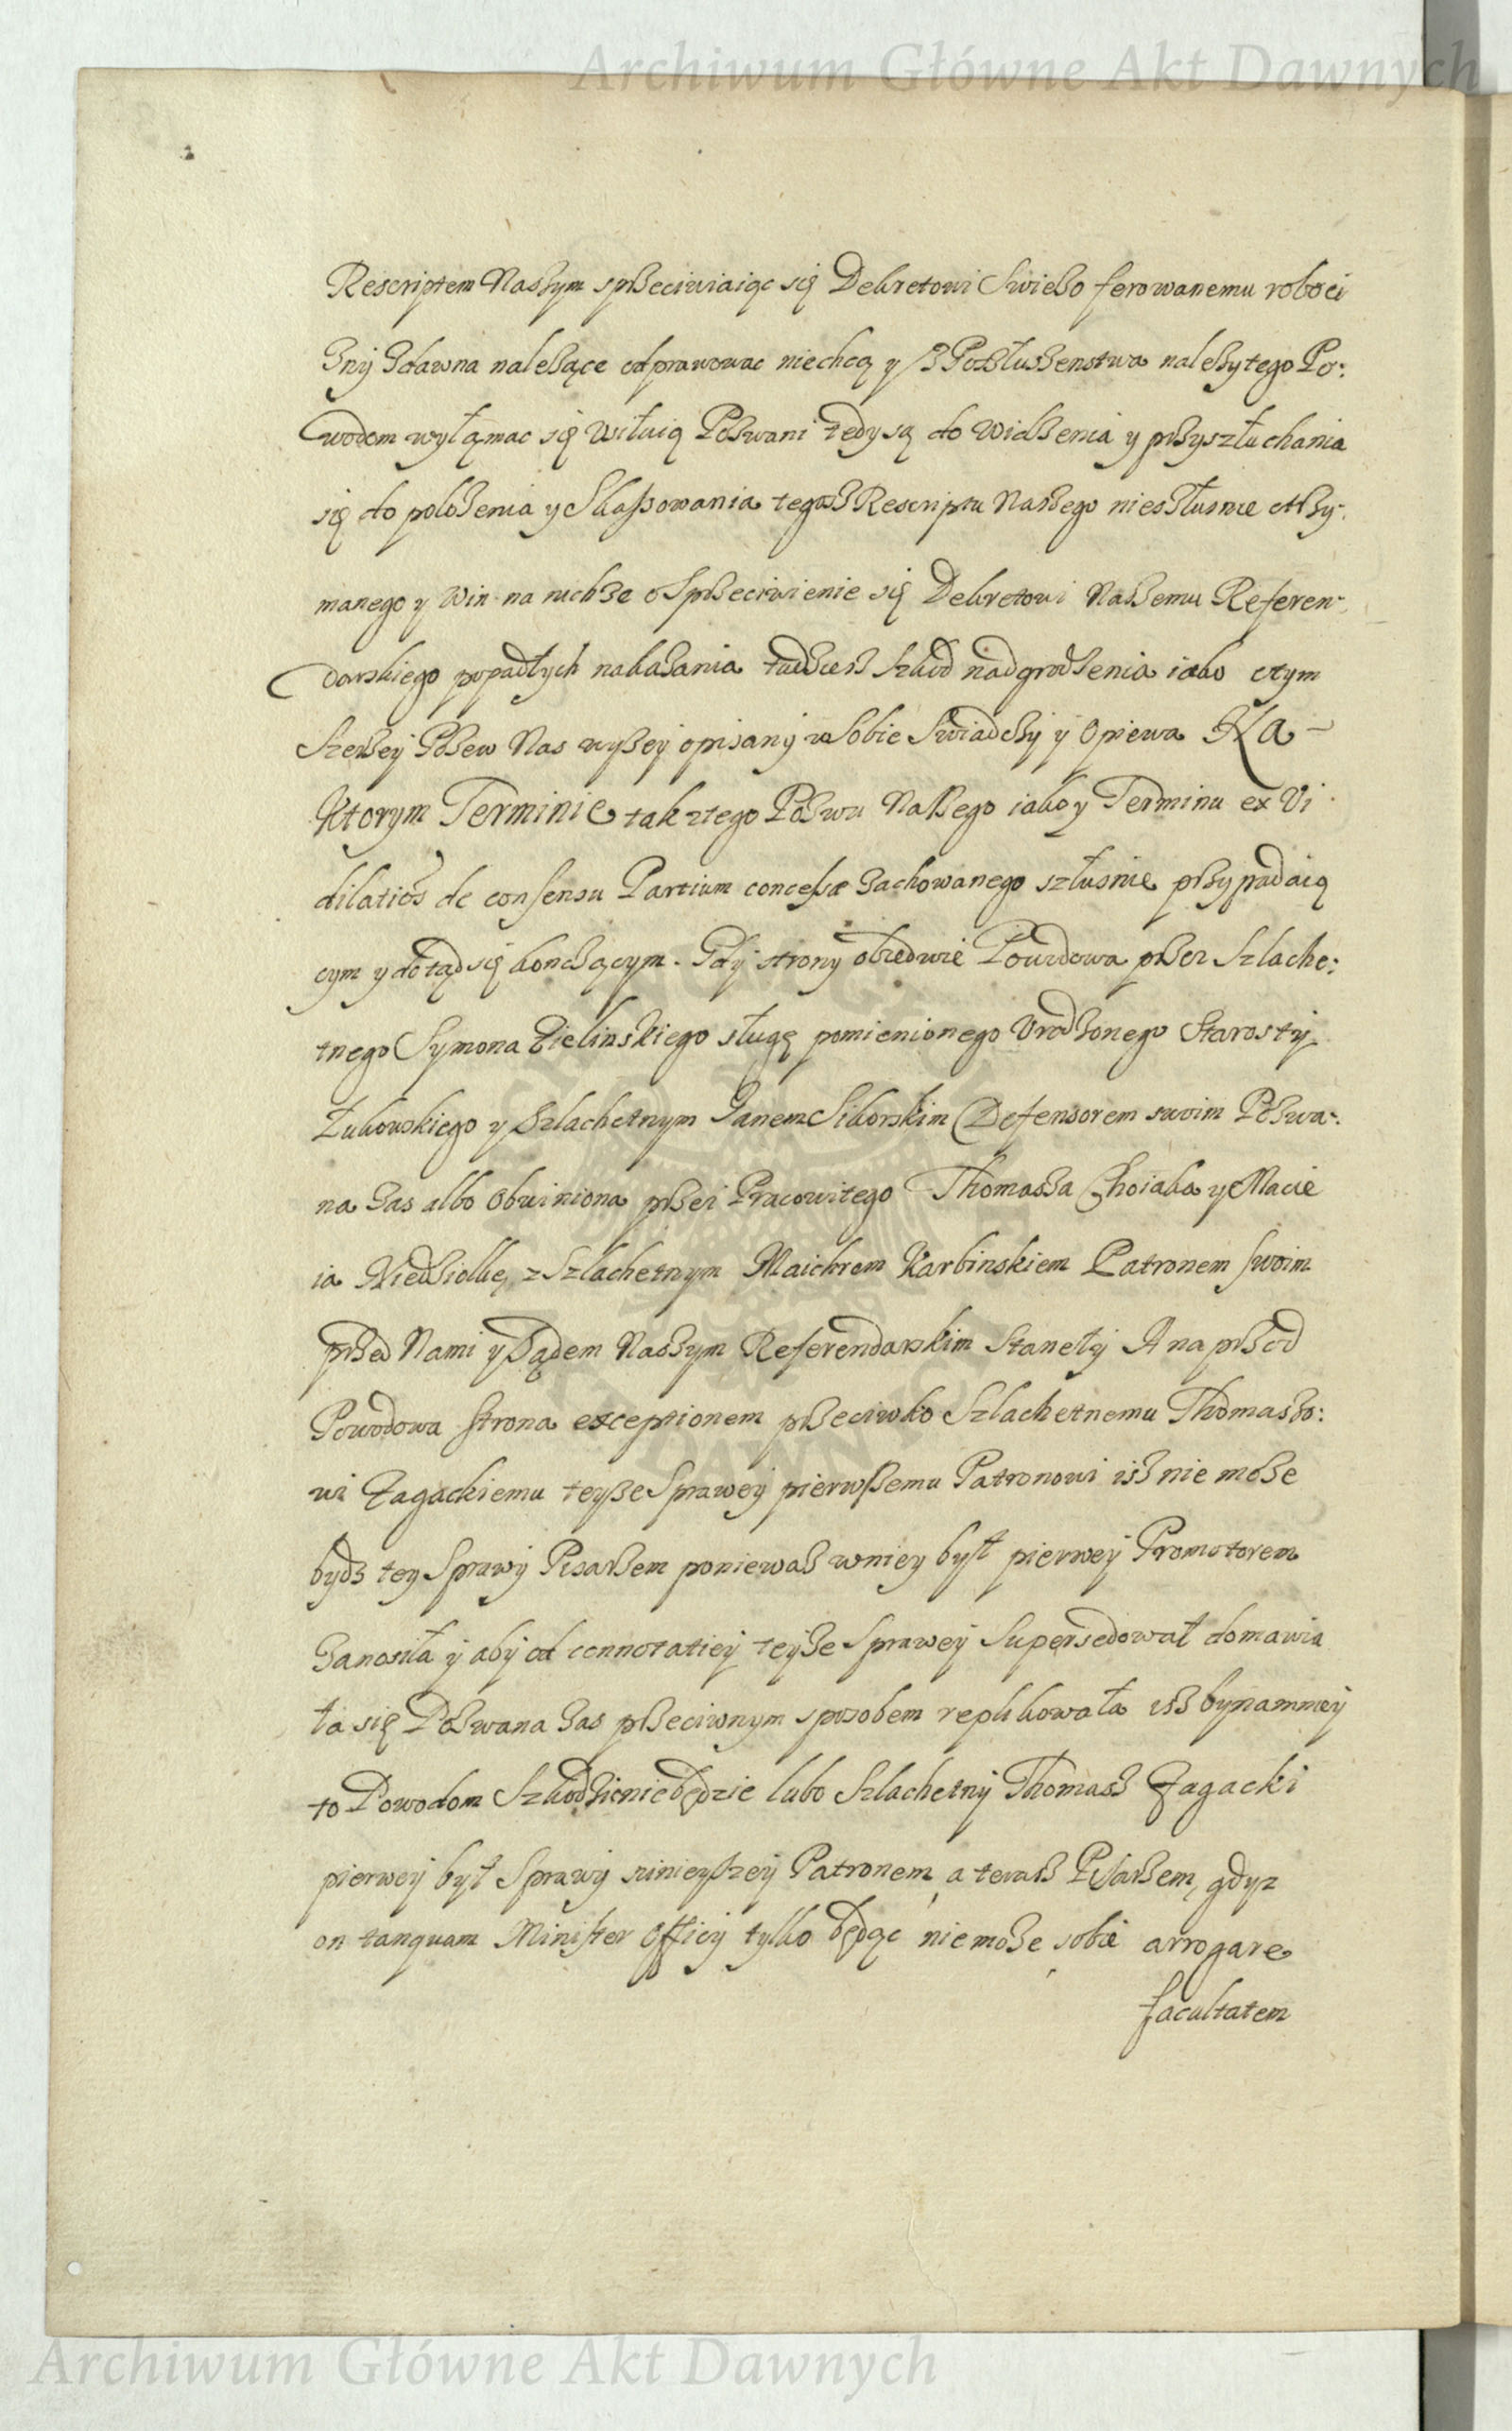 Archiwum Główne Akt Dawnych
Rescriptem Naszym sprzeciwiaiąc się Dekretowi Swieżo ferowanemu roboci
zny zdawna należące odprawowac niechcą y z Posłuszenstwa należytego Po:
wodom wyłąmac się Usiłuią Pozwani tedy są do Widzenia y przysztuchania
się do położenia y Skassowania tegoż Rescriptu Naszego niesłusznie otrzy:
manego y Win na nichze o Sprzeciwienie się Dekretowi Naszemu Referen:
darskiego popadłych nakazania tudziesz Szkod nadgrodzenia iako otym
Szerzey Pozew Nas wyzey opisany w Sobie Swiadczy y Opiewa Na
Ktorym Terminie tak ztego Pozwu Naszego iako y Terminu ex Vi
dilatios de consensu Partium concessæ Zachowanego szłusnie przypadaią
cym y dotąd się konczącym. Gdy strony obiedwie Powodowa przez Szlache:
tnego Symona Zielinskiego sługę pomienionego Urodzonego Starosty
Łukowskiego y Szlachetnym Janem Sikorskim Defensorem swoim Pozwa:
na zas albo Obwiniona przez Pracowitego Thomasza Choiaka y Macie
ia Niedziolkę z Szlachetnym Maichrem Karbinskiem Patronem swoim
przed Nami y Sądem Naszym Referendarskim Stanęły A naprzod
Powodowa strona exceptionem przeciwko Szlachetnemu Thomaszo:
wi Zagackiemu teyze Sprawey pierwszemu Patronowi isz nie może
bydz tey Sprawy Pisarzem poniewaz wniey był pierwey Promotorem
Zanosiła y aby od connotatiey teyże Sprawey Supersedował domawia
ła się Pozwana zas przeciwnym sposobem replikowała isz bynamniey
to Powodom Szkodzic nie będzie lubo Szlachetny Thomasz Zagacki
pierwey był Sprawy ninieyszey Patronem, a terasz Pisarzem, gdyz
on tanquam Minister Officij tylko będąc niemoże sobie arrogare
facultatem
Archiwum Główne Akt Dawnych